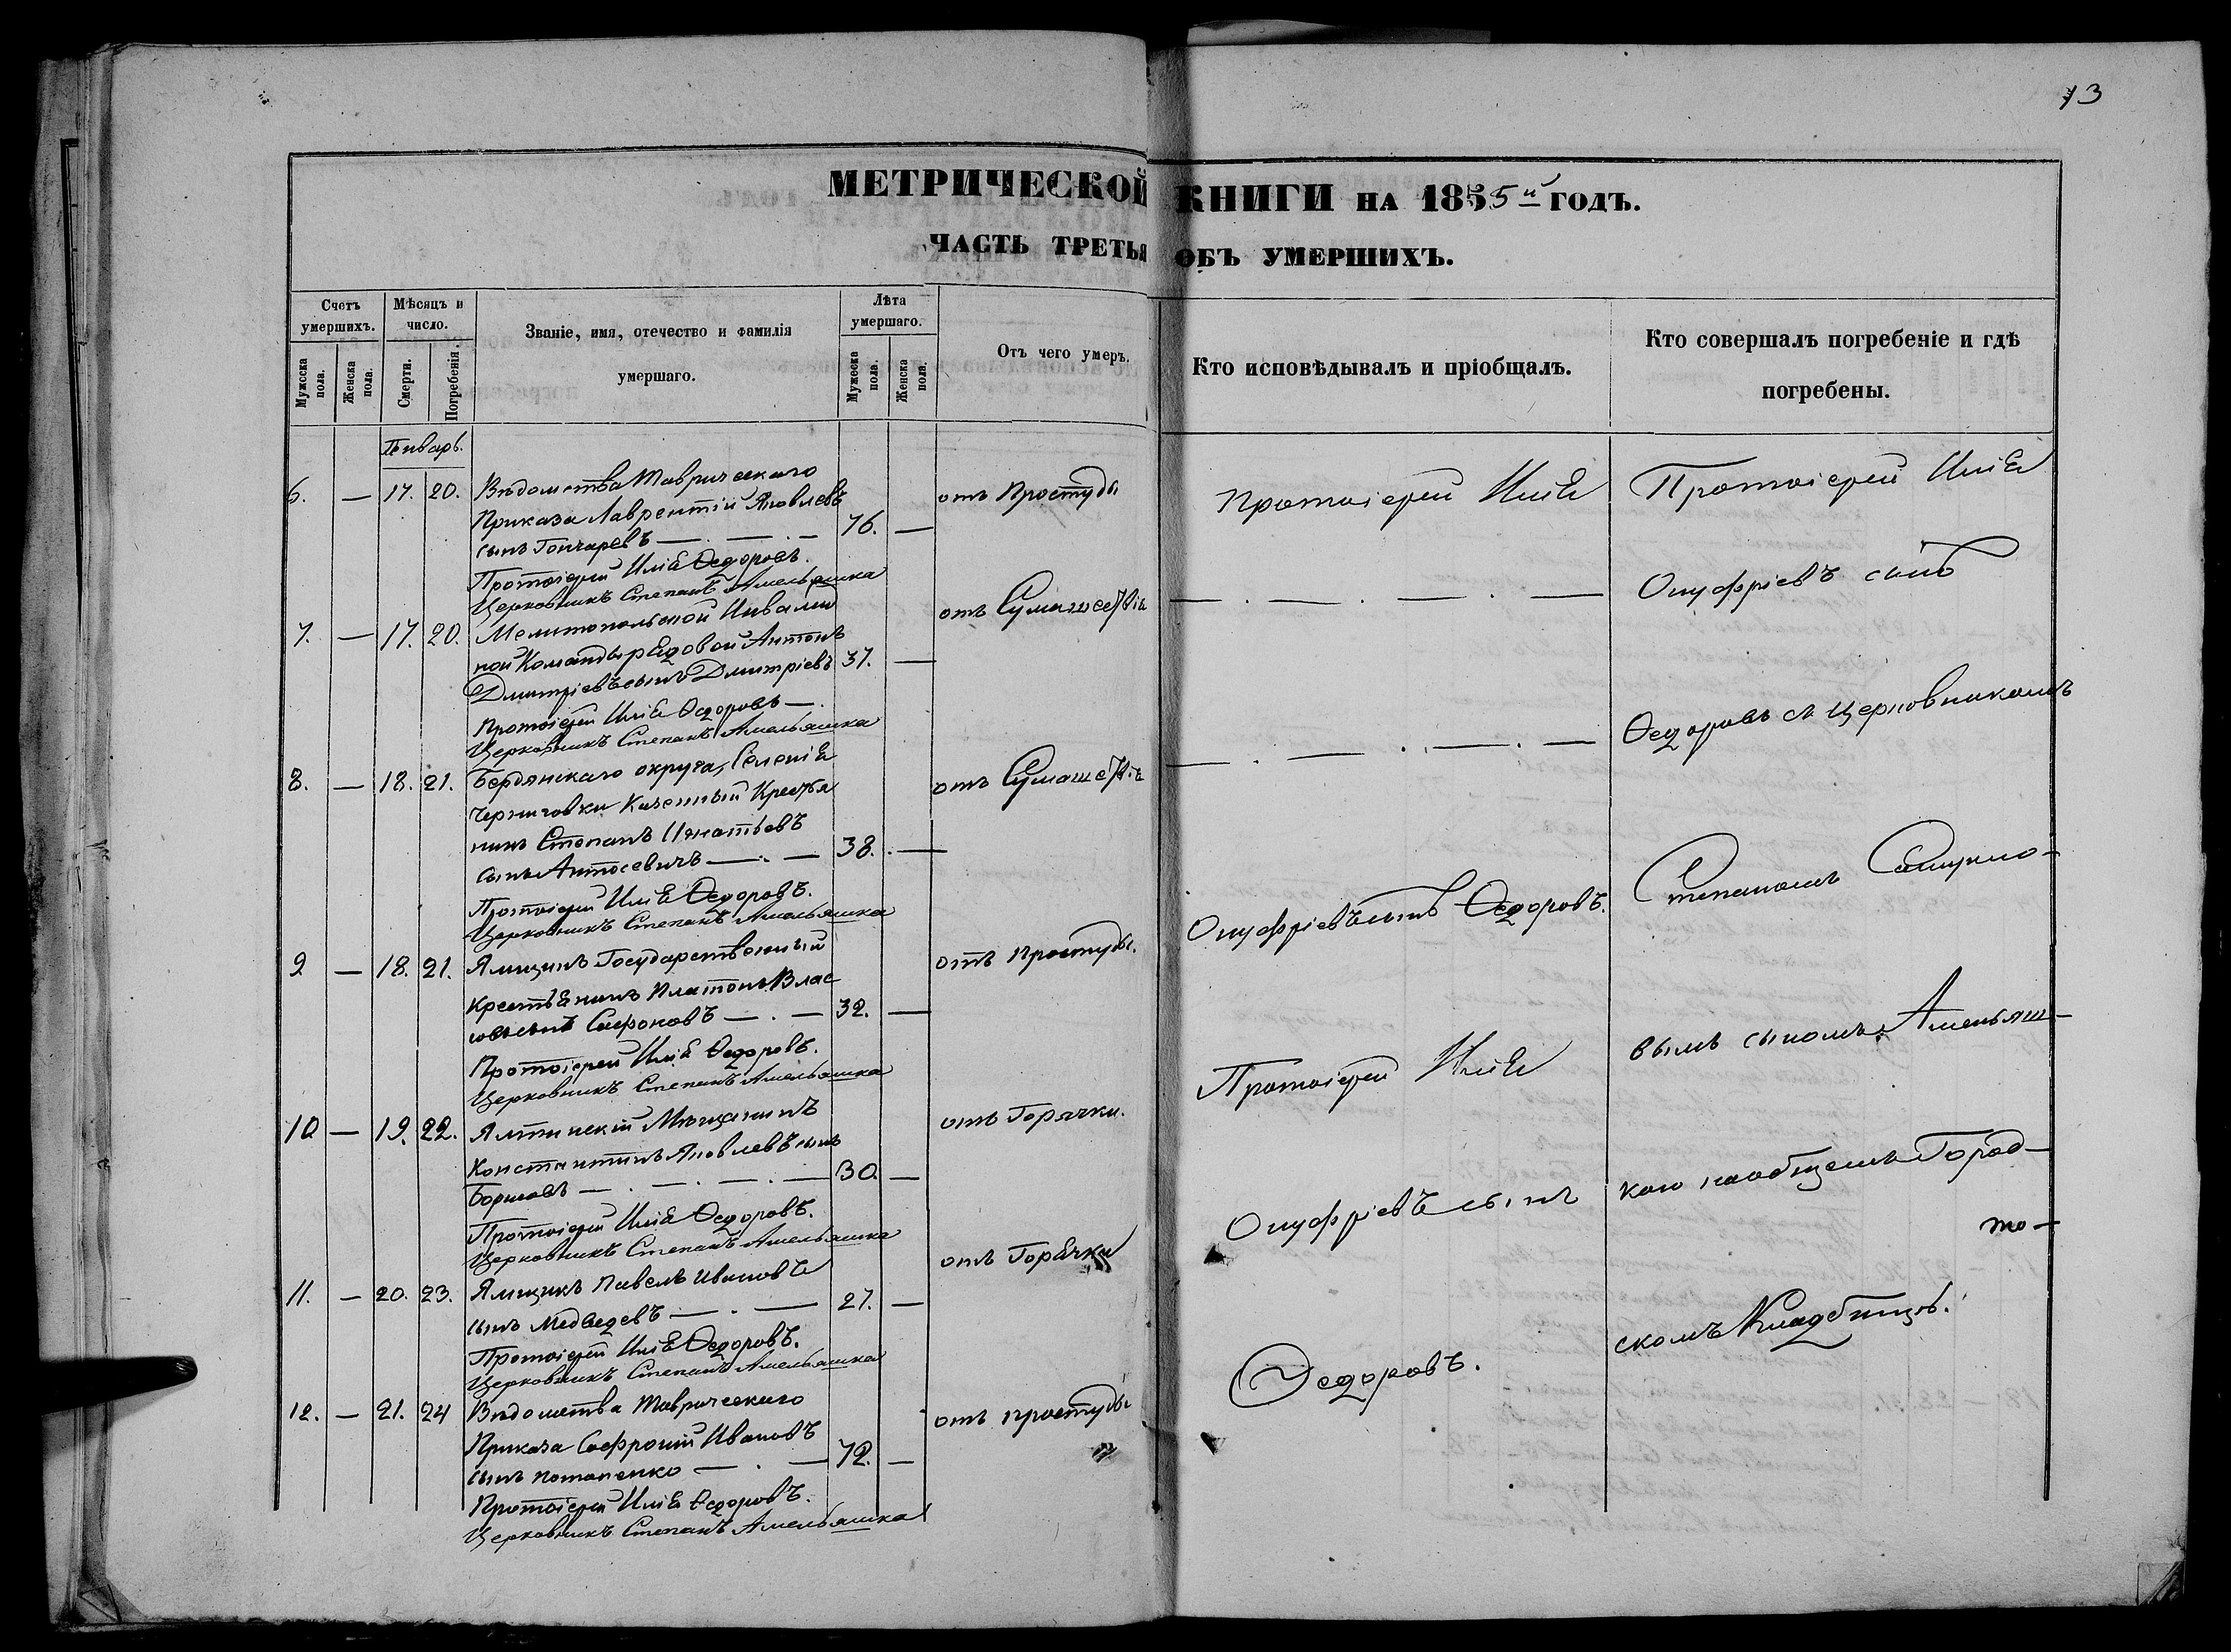 13
МЕТРИЧЕСКОЙ КНИГИ НА 1855й ГОДЪ.
ЧАСТЬ ТРЕТЬЯ ОБЪ УМЕРШИХЪ.
Счетъ умершихъ.
Мужеска пола.
Женска пола.
Мѣсяцъ и число.
Смерти.
Погребенія.
Званіе, имя, отечество и фамилія
умершаго.
Лѣта умершаго.
Мужеска пола.
Женска пола.
Отъ чего умеръ.
Кто исповѣдывалъ и пріобщалъ.
Кто совершалъ погребеніе и гдѣ
погребены.
Январь.
6. — 17. 20. Вѣдомства Таврическаго
Приказа Лаврентій Яковлевъ
сынъ Гончаревъ — 76. —
отъ Простуды
Протоіерей Илія Ѳедоровъ.
Церковникъ Степанъ Амельяшка
7. — 17. 20. Мелитопольской Инвалид
ной Команды рядовой Антонъ
Дмитріевъ сынъ Дмитріевъ 37. —
отъ Сумашествія
Протоіерей Илія Ѳедоровъ —
Церковникъ Степанъ Амельяшка
8. — 18. 21. Бердянскаго округа, Селенія
Черниговки Казенный Крестья
нинъ Степанъ Игнатьевъ
сынъ Антосевичъ — 38. —
отъ Сумашествія
Протоіерей Илія Ѳедоровъ.
Церковникъ Степанъ Амельяшка
9 — 18. 21. Ямщикъ Государственный
Крестьянинъ Платонъ Влас
овъ сынъ Сафроновъ — 32. —
отъ простуды.
Протоіерей Илія Ѳедоровъ.
Церковникъ Степанъ Амельяшка
10 — 19. 22. Ялтинскій Мѣщанинъ
Константинъ Яковлевъ сынъ
Борисовъ — 30. —
отъ Горячки.
Протоіерей Илія Ѳедоровъ.
Церковникъ Степанъ Амельяшка
11. — 20. 23. Ямщикъ Павелъ Ивановъ
сынъ Медведевъ — 27. —
отъ Горячки
Протоіерей Илія Ѳедоровъ.
Церковникъ Степанъ Амельяшка
12. — 21. 24 Вѣдомства Таврическаго
Приказа Софроній Ивановъ
сынъ Потапенко — 72. —
отъ простуды
Протоіерей Илія Ѳедоровъ.
Церковникъ Степанъ Амельяшка
Протоіерей Илія
Онуфріевъ сынъ Ѳедоровъ.
Протоіерей Илія
Онуфріевъ сынъ
Ѳедоровъ.
Протоіерей Илія
Онуфріевъ сынъ
Ѳедоровъ съ церковникомъ
Степаномъ
вымъ сыномъ Амельяш-
кою на общемъ Город-
скомъ Кладбищѣ.
то-